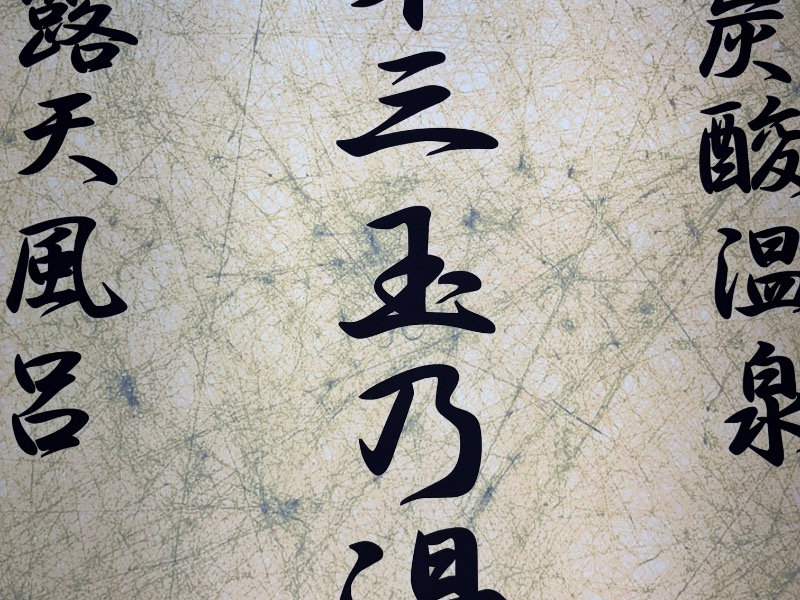 炭酸温泉
三玉乃湯
露天風呂